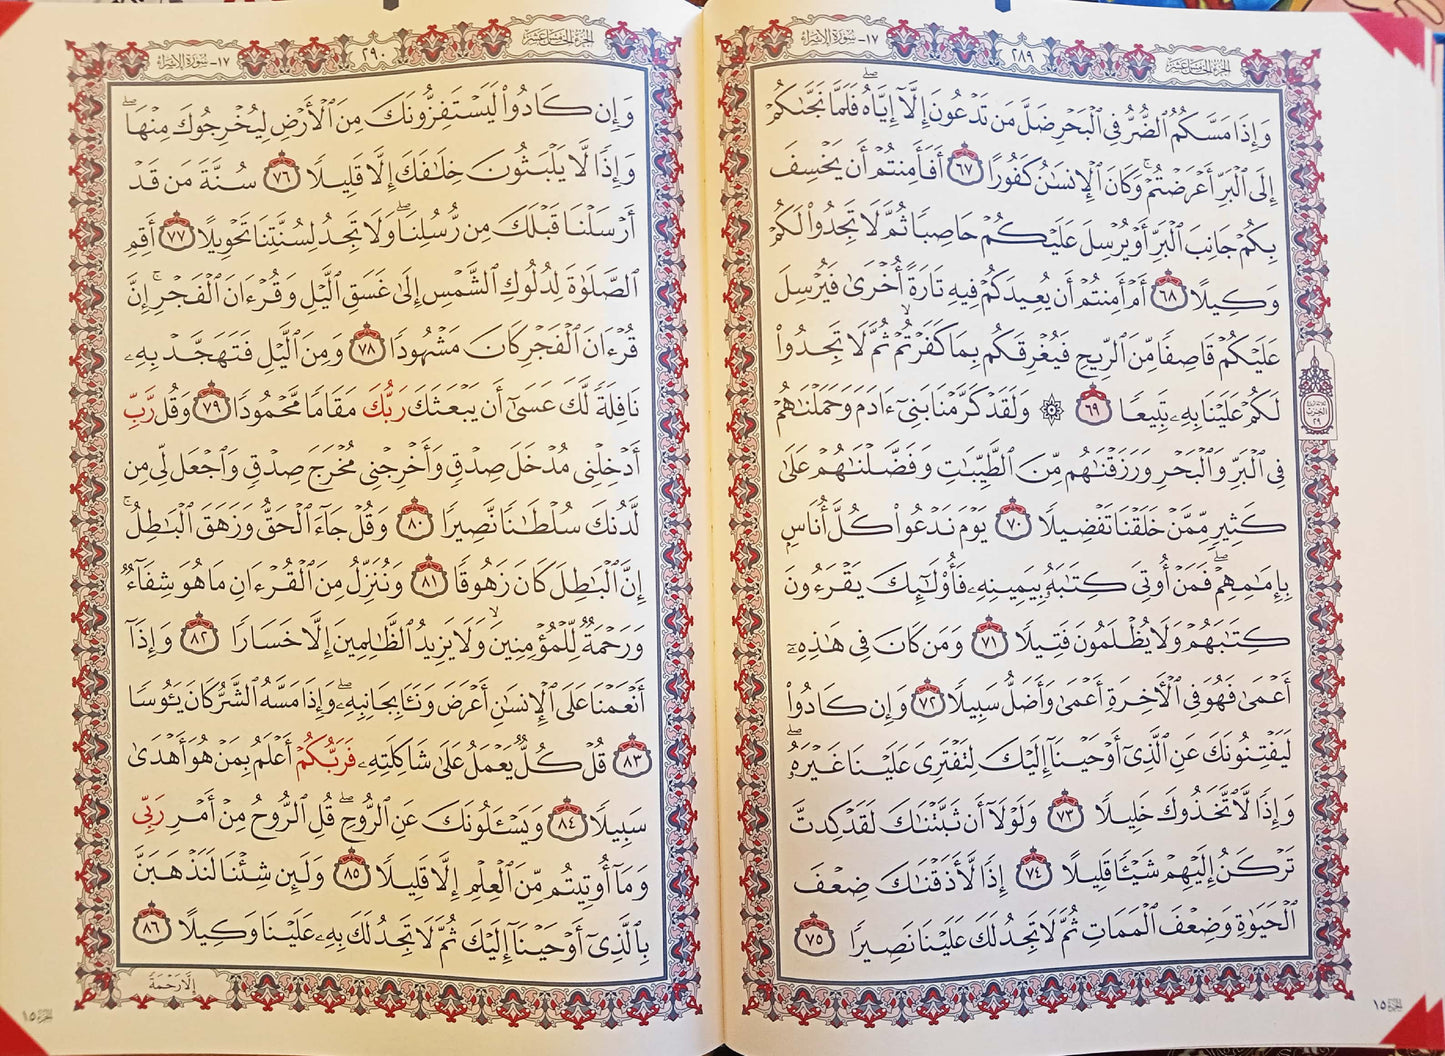 ١٧- سُورَةُ الإِسْرَاءِ
٢٨٩
الجُزْءُ الخَامِسَ عَشَرَ
وَإِذَا مَسَّكُمُ ٱلضُّرُّ فِي ٱلْبَحْرِ ضَلَّ مَن تَدْعُونَ إِلَّآ إِيَّاهُ ۖ فَلَمَّا نَجَّىٰكُمْ
إِلَى ٱلْبَرِّ أَعْرَضْتُمْ ۚ وَكَانَ ٱلْإِنسَـٰنُ كَفُورًا ٦٧ أَفَأَمِنتُمْ أَن يَخْسِفَ
بِكُمْ جَانِبَ ٱلْبَرِّ أَوْ يُرْسِلَ عَلَيْكُمْ حَاصِبًا ثُمَّ لَا تَجِدُوا۟ لَكُمْ
وَكِيلًا ٦٨ أَمْ أَمِنتُمْ أَن يُعِيدَكُمْ فِيهِ تَارَةً أُخْرَىٰ فَيُرْسِلَ
عَلَيْكُمْ قَاصِفًا مِّنَ ٱلرِّيحِ فَيُغْرِقَكُم بِمَا كَفَرْتُمْ ۙ ثُمَّ لَا تَجِدُوا۟
لَكُمْ عَلَيْنَا بِهِۦ تَبِيعًا ٦٩ ۞ وَلَقَدْ كَرَّمْنَا بَنِىٓ ءَادَمَ وَحَمَلْنَـٰهُمْ
فِي ٱلْبَرِّ وَٱلْبَحْرِ وَرَزَقْنَـٰهُم مِّنَ ٱلطَّيِّبَـٰتِ وَفَضَّلْنَـٰهُمْ عَلَىٰ
كَثِيرٍ مِّمَّنْ خَلَقْنَا تَفْضِيلًا ٧٠ يَوْمَ نَدْعُوا۟ كُلَّ أُنَاسٍۭ
بِإِمَـٰمِهِمْ ۖ فَمَنْ أُوتِىَ كِتَـٰبَهُۥ بِيَمِينِهِۦ فَأُو۟لَـٰٓئِكَ يَقْرَءُونَ
كِتَـٰبَهُمْ وَلَا يُظْلَمُونَ فَتِيلًا ٧١ وَمَن كَانَ فِى هَـٰذِهِۦٓ
أَعْمَىٰ فَهُوَ فِي ٱلْـَٔاخِرَةِ أَعْمَىٰ وَأَضَلُّ سَبِيلًا ٧٢ وَإِن كَادُوا۟
لَيَفْتِنُونَكَ عَنِ ٱلَّذِىٓ أَوْحَيْنَآ إِلَيْكَ لِتَفْتَرِىَ عَلَيْنَا غَيْرَهُۥ ۖ
وَإِذًا لَّٱتَّخَذُوكَ خَلِيلًا ٧٣ وَلَوْلَآ أَن ثَبَّتْنَـٰكَ لَقَدْ كِدتَّ
تَرْكَنُ إِلَيْهِمْ شَيْـًٔا قَلِيلًا ٧٤ إِذًا لَّأَذَقْنَـٰكَ ضِعْفَ
ٱلْحَيَوٰةِ وَضِعْفَ ٱلْمَمَاتِ ثُمَّ لَا تَجِدُ لَكَ عَلَيْنَا نَصِيرًا ٧٥
الحِزْبُ
٢٩
الجُزْءُ ١٥
١٧- سُورَةُ الإِسْرَاءِ
٢٩٠
الجُزْءُ الخَامِسَ عَشَرَ
وَإِن كَادُوا۟ لَيَسْتَفِزُّونَكَ مِنَ ٱلْأَرْضِ لِيُخْرِجُوكَ مِنْهَا ۖ
وَإِذًا لَّا يَلْبَثُونَ خِلَـٰفَكَ إِلَّا قَلِيلًا ٧٦ سُنَّةَ مَن قَدْ
أَرْسَلْنَا قَبْلَكَ مِن رُّسُلِنَا ۖ وَلَا تَجِدُ لِسُنَّتِنَا تَحْوِيلًا ٧٧ أَقِمِ
ٱلصَّلَوٰةَ لِدُلُوكِ ٱلشَّمْسِ إِلَىٰ غَسَقِ ٱلَّيْلِ وَقُرْءَانَ ٱلْفَجْرِ ۖ إِنَّ
قُرْءَانَ ٱلْفَجْرِ كَانَ مَشْهُودًا ٧٨ وَمِنَ ٱلَّيْلِ فَتَهَجَّدْ بِهِۦ
نَافِلَةً لَّكَ عَسَىٰٓ أَن يَبْعَثَكَ رَبُّكَ مَقَامًا مَّحْمُودًا ٧٩ وَقُل رَّبِّ
أَدْخِلْنِى مُدْخَلَ صِدْقٍ وَأَخْرِجْنِى مُخْرَجَ صِدْقٍ وَٱجْعَل لِّى مِن
لَّدُنكَ سُلْطَـٰنًا نَّصِيرًا ٨٠ وَقُلْ جَآءَ ٱلْحَقُّ وَزَهَقَ ٱلْبَـٰطِلُ ۚ
إِنَّ ٱلْبَـٰطِلَ كَانَ زَهُوقًا ٨١ وَنُنَزِّلُ مِنَ ٱلْقُرْءَانِ مَا هُوَ شِفَآءٌ
وَرَحْمَةٌ لِّلْمُؤْمِنِينَ ۙ وَلَا يَزِيدُ ٱلظَّـٰلِمِينَ إِلَّا خَسَارًا ٨٢ وَإِذَآ
أَنْعَمْنَا عَلَى ٱلْإِنسَـٰنِ أَعْرَضَ وَنَـَٔا بِجَانِبِهِۦ ۖ وَإِذَا مَسَّهُ ٱلشَّرُّ كَانَ يَـُٔوسًا
٨٣ قُلْ كُلٌّ يَعْمَلُ عَلَىٰ شَاكِلَتِهِۦ فَرَبُّكُمْ أَعْلَمُ بِمَنْ هُوَ أَهْدَىٰ
سَبِيلًا ٨٤ وَيَسْـَٔلُونَكَ عَنِ ٱلرُّوحِ ۖ قُلِ ٱلرُّوحُ مِنْ أَمْرِ رَبِّى
وَمَآ أُوتِيتُم مِّنَ ٱلْعِلْمِ إِلَّا قَلِيلًا ٨٥ وَلَئِن شِئْنَا لَنَذْهَبَنَّ
بِٱلَّذِىٓ أَوْحَيْنَآ إِلَيْكَ ثُمَّ لَا تَجِدُ لَكَ بِهِۦ عَلَيْنَا وَكِيلًا ٨٦
إِلَّا رَحْمَةً
الجُزْءُ ١٥